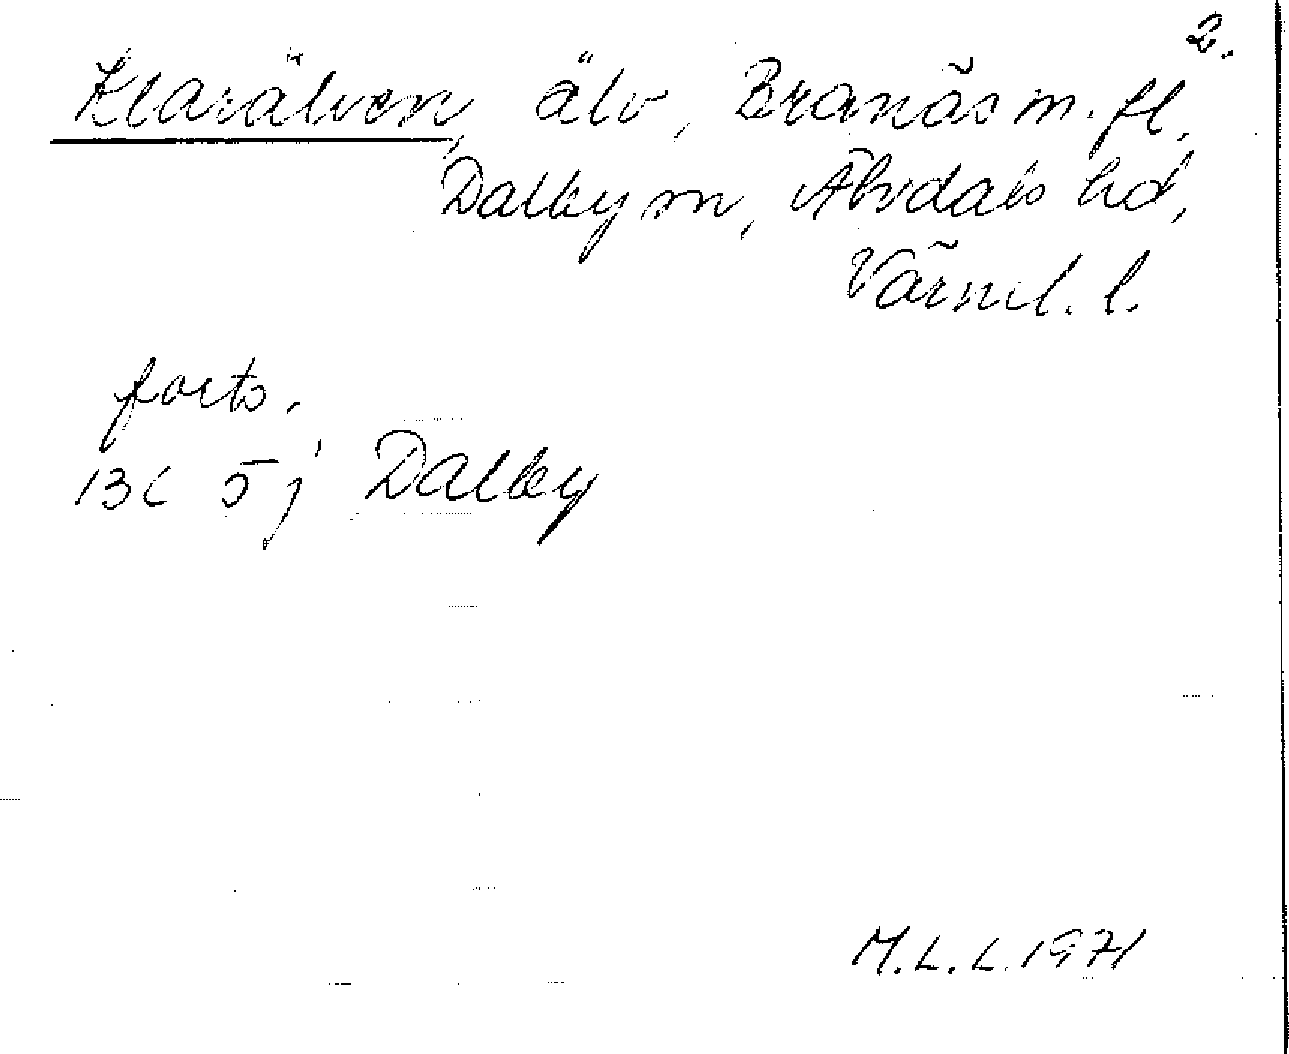 2.
Klarälven, älv, Branäs m. fl.
Dalby sn, Älvdals hd,
Värml. l.
forts.
13C 5j Dalby
M.L.L. 1971